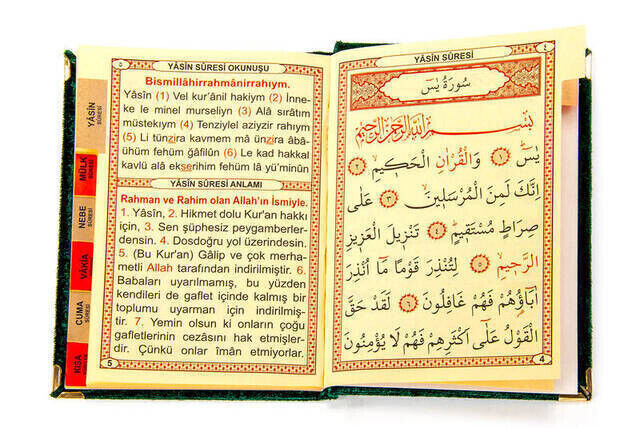 YÂSÎN SÛRESİ OKUNUŞU
٥
Bismillâhirrahmânirrahıym.
Yâsîn (1) Vel kur'ânil hakiym (2) İnne-
ke le minel murseliyn (3) Alâ sırâtım
müstekıym (4) Tenziylel aziyzir rahıym
(5) Li tünzira kavmem mâ ünzira âbâ-
ühüm fehüm ğâfilûn (6) Le kad hakkal
kavlü alâ ekserihim fehüm lâ yü'minûn
YÂSÎN SÛRESİ ANLAMI
Rahman ve Rahim olan Allah'ın İsmiyle.
1. Yâsîn, 2. Hikmet dolu Kur'an hakkı
için, 3. Sen şüphesiz peygamberler-
densin. 4. Dosdoğru yol üzerindesin.
5. (Bu Kur'an) Gâlip ve çok merha-
metli Allah tarafından indirilmiştir. 6.
Babaları uyarılmamış, bu yüzden
kendileri de gaflet içinde kalmış bir
toplumu uyarman için indirilmiş-
tir. 7. Yemin olsun ki onların çoğu
gafletlerinin cezasını hak etmişler-
dir. Çünkü onlar îmân etmiyorlar.
5
YÂSÎN
SÛRESİ
MÜLK
SÛRESİ
NEBE
SÛRESİ
VÂKIA
CUMA
SÛRESİ
KISA
YÂSÎN SÛRESİ
٤
سُورَةُ يٰسٓ
بِسْمِ اللّٰهِ الرَّحْمٰنِ الرَّحِيمِ
يٰسٓ ﴿١﴾ وَالْقُرْاٰنِ الْحَكِيمِ ﴿٢﴾
اِنَّكَ لَمِنَ الْمُرْسَلِينَ ﴿٣﴾ عَلٰى
صِرَاطٍ مُسْتَقِيمٍ ﴿٤﴾ تَنْزِيلَ الْعَزِيزِ
الرَّحِيمِ ﴿٥﴾ لِتُنْذِرَ قَوْمًا مَٓا اُنْذِرَ
اٰبَٓاؤُهُمْ فَهُمْ غَافِلُونَ ﴿٦﴾ لَقَدْ حَقَّ
الْقَوْلُ عَلٰٓى اَكْثَرِهِمْ فَهُمْ لَا يُؤْمِنُونَ
4